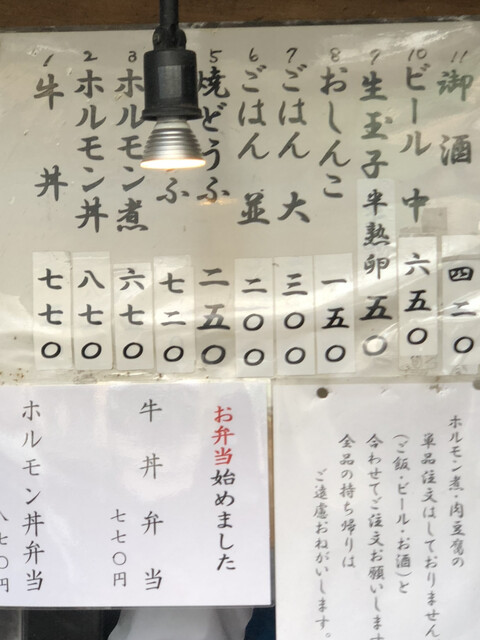 11 御酒 四二〇
10 ビール 中 六五〇
9 生玉子 半熟卵 五〇
8 おしんこ 一五〇
7 ごはん 大 三〇〇
6 ごはん 並 二〇〇
5 焼どうふ 二五〇
ふ 七二〇
3 ホルモン煮 六七〇
2 ホルモン丼 八七〇
1 牛丼 七七〇
お弁当始めました
牛丼弁当
七七〇円
ホルモン丼弁当
八七〇円
ホルモン煮・肉豆腐の
単品注文はしておりません
(ご飯・ビール・お酒)と
合わせてご注文お願いします
全品の持ち帰りは
ご遠慮おねがいします。